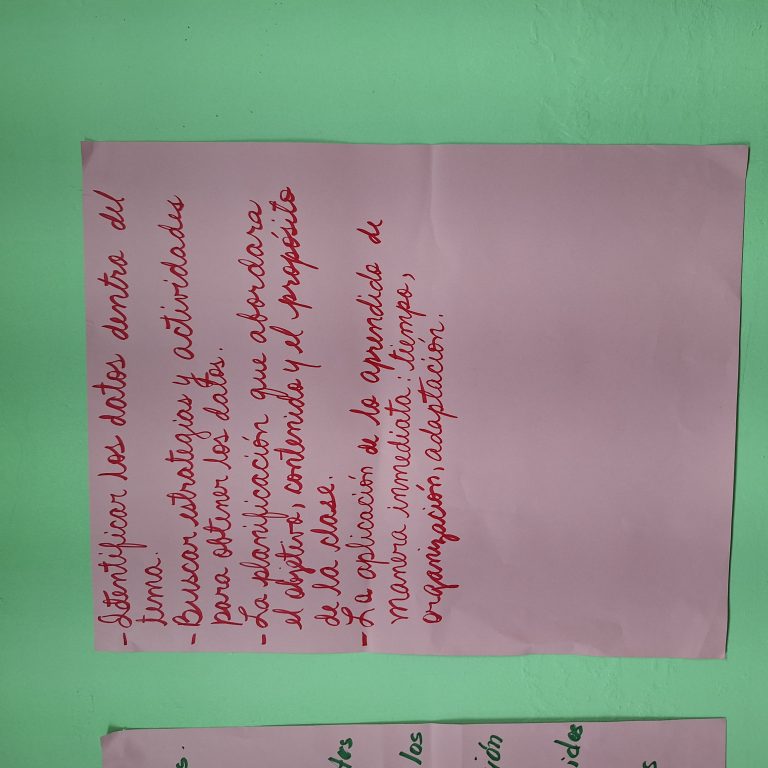 - Identificar los datos dentro del
tema.
- Buscar estrategias y actividades
para obtener los datos.
- La planificación que abordara
el objetivo, contenido y el propósito
de la clase.
- La aplicación de lo aprendido de
manera inmediata: tiempo,
organización, adaptación.
s.
tes
los
ión
ides
s